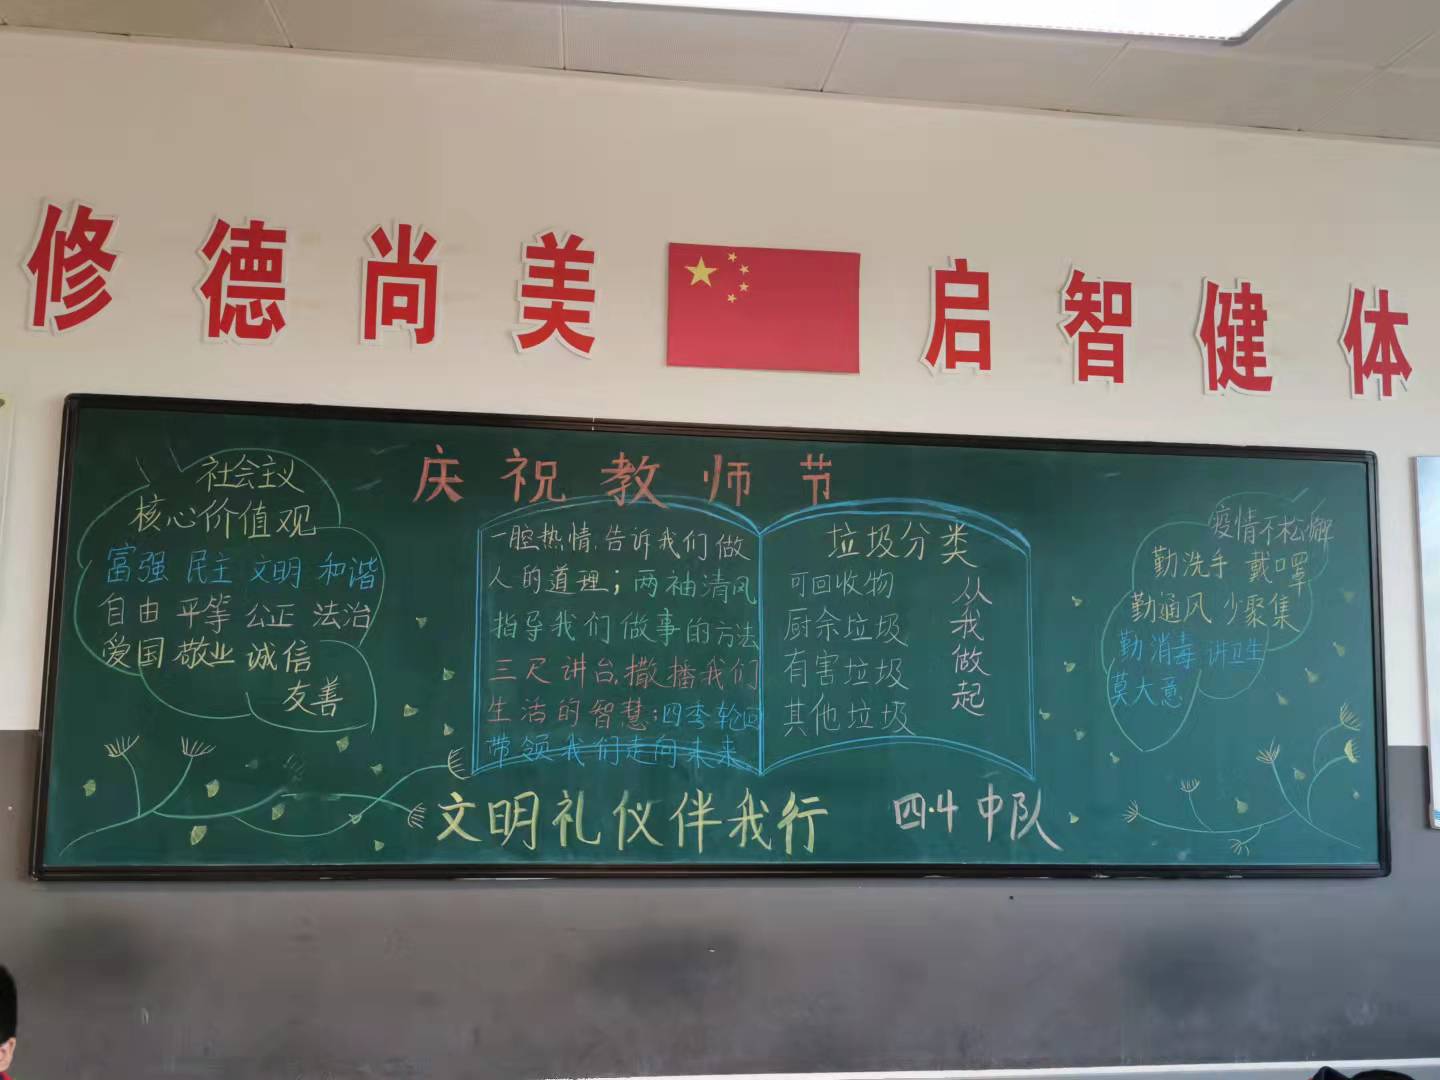 修德尚美 启智健体
社会主义
核心价值观
富强 民主 文明 和谐
自由 平等 公正 法治
爱国 敬业 诚信
友善
庆祝教师节
一腔热情,告诉我们做
人的道理;两袖清风
指导我们做事的方法
三尺讲台,撒播我们
生活的智慧;四季轮回
带领我们走向未来
垃圾分类
可回收物
厨余垃圾
有害垃圾
其他垃圾
从我做起
疫情不松懈
勤洗手 戴口罩
勤通风 少聚集
勤消毒 讲卫生
莫大意
文明礼仪伴我行 四·4中队